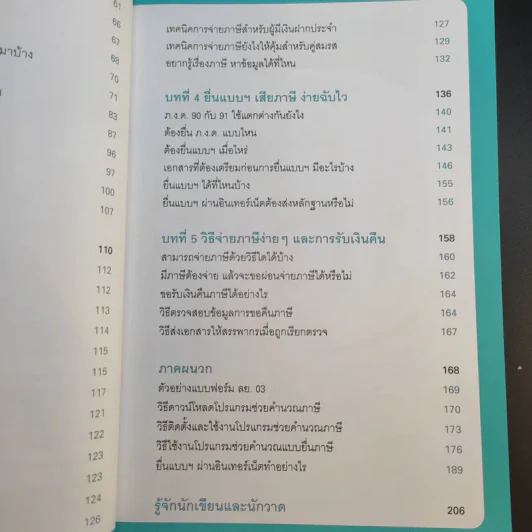 61
66
67
มาบ้าง
68
70
71
83
87
96
97
100
107
110
112
112
113
114
115
115
117
121
122
123
123
124
126
เทคนิคการจ่ายภาษีสำหรับผู้มีเงินฝากประจำ 127
เทคนิคการจ่ายภาษียังไงให้คุ้มสำหรับคู่สมรส 129
อยากรู้เรื่องภาษี หาข้อมูลได้ที่ไหน 132
บทที่ 4 ยื่นแบบฯ เสียภาษี ง่ายฉับไว 136
ภ.ง.ด. 90 กับ 91 ใช้แตกต่างกันยังไง 140
ต้องยื่น ภ.ง.ด. แบบไหน 141
ต้องยื่นแบบฯ เมื่อไหร่ 143
เอกสารที่ต้องเตรียมก่อนการยื่นแบบฯ มีอะไรบ้าง 146
ยื่นแบบฯ ได้ที่ไหนบ้าง 155
ยื่นแบบฯ ผ่านอินเทอร์เน็ตต้องส่งหลักฐานหรือไม่ 156
บทที่ 5 วิธีจ่ายภาษีง่ายๆ และการรับเงินคืน 158
สามารถจ่ายภาษีด้วยวิธีใดได้บ้าง 160
มีภาษีต้องจ่าย แล้วจะขอผ่อนจ่ายภาษีได้หรือไม่ 162
ขอรับเงินคืนภาษีได้อย่างไร 164
วิธีตรวจสอบข้อมูลการขอคืนภาษี 164
วิธีส่งเอกสารให้สรรพากรเมื่อถูกเรียกตรวจ 167
ภาคผนวก 168
ตัวอย่างแบบฟอร์ม ลย. 03 169
วิธีดาวน์โหลดโปรแกรมช่วยคำนวณภาษี 170
วิธีติดตั้งและใช้งานโปรแกรมช่วยคำนวณภาษี 173
วิธีใช้งานโปรแกรมช่วยคำนวณแบบยื่นภาษี 176
ยื่นแบบฯ ผ่านอินเทอร์เน็ตทำอย่างไร 189
รู้จักนักเขียนและนักวาด 206